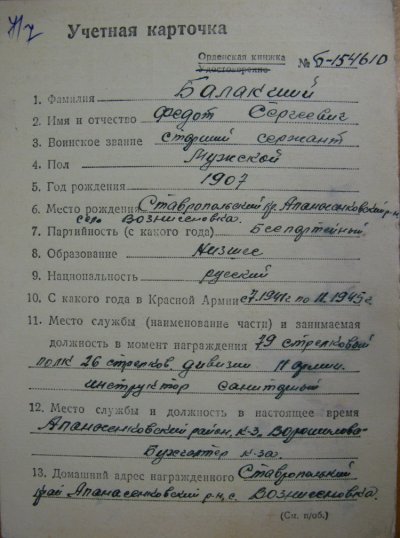 Учетная карточка
Орденская книжка
Удостоверение
№ Б-154610
1. Фамилия Балакший
2. Имя и отчество Федот Сергеевич
3. Воинское звание старший сержант
4. Пол Мужской
5. Год рождения 1907
6. Место рождения Ставропольский кр. Апанасенковский р-н
село Вознисеновка.
7. Партийность (с какого года) Беспартейный
8. Образование Низшее
9. Национальность русский
10. С какого года в Красной Армии с 7.1941г по 11.1945г
11. Место службы (наименование части) и занимаемая
должность в момент награждения 79 стрелковый
полк 26 стрелков. дивизии 11 армии.
инструктор санитарный
12. Место службы и должность в настоящее время
Апанасенковский район, к-з Ворошилова
Бухгалтер к-за.
13. Домашний адрес награжденного Ставропольский
край Апанасенковский р-н, с. Вознисеновка.
(См. н/об.)